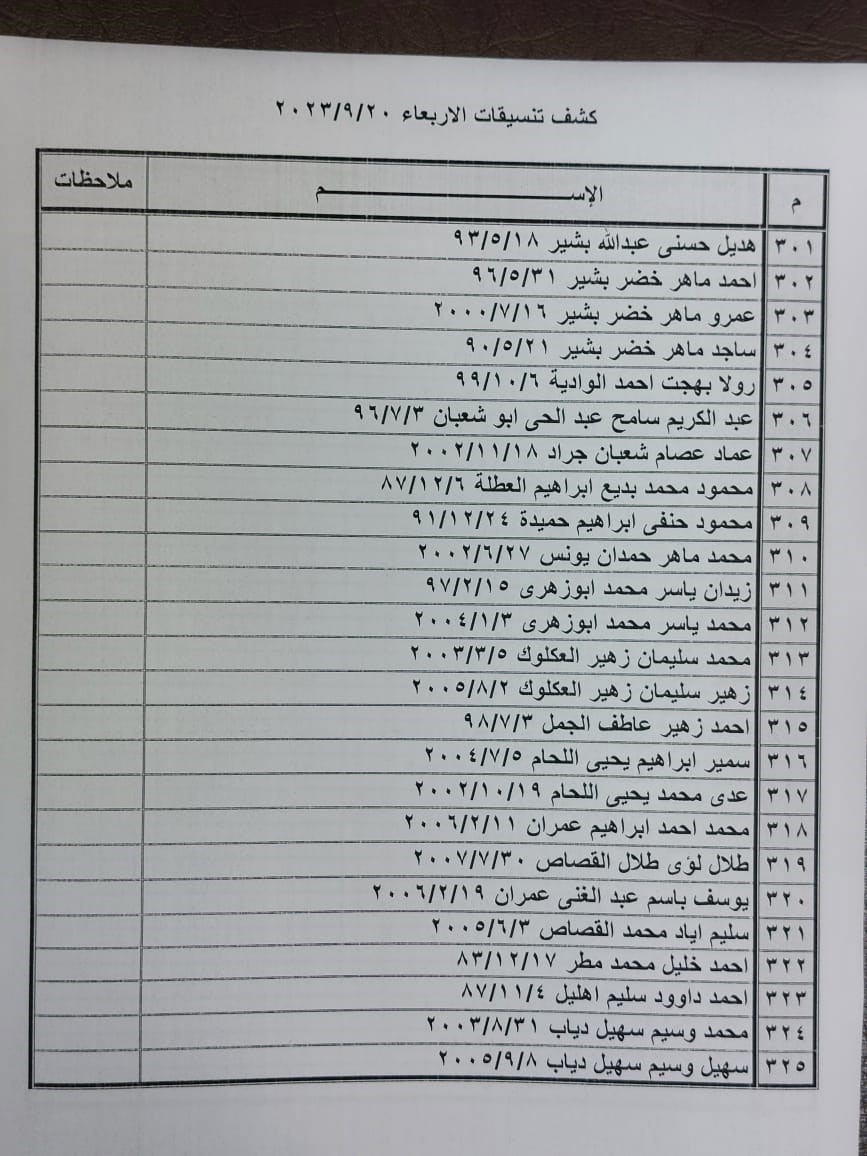 كشف تنسيقات الاربعاء ٢٠٢٣/٩/٢٠
م الإســـــــــــم ملاحظات
٣٠١ هديل حسنى عبدالله بشير ٩٣/٥/١٨
٣٠٢ احمد ماهر خضر بشير ٩٦/٥/٣١
٣٠٣ عمرو ماهر خضر بشير ٢٠٠٠/٧/١٦
٣٠٤ ساجد ماهر خضر بشير ٩٠/٥/٢١
٣٠٥ رولا بهجت احمد الوادية ٩٩/١٠/٦
٣٠٦ عبد الكريم سامح عبد الحى ابو شعبان ٩٦/٧/٣
٣٠٧ عماد عصام شعبان جراد ٢٠٠٢/١١/١٨
٣٠٨ محمود محمد بديع ابراهيم العطلة ٨٧/١٢/٦
٣٠٩ محمود حنفى ابراهيم حميدة ٩١/١٢/٢٤
٣١٠ محمد ماهر حمدان يونس ٢٠٠٢/٦/٢٧
٣١١ زيدان ياسر محمد ابوزهرى ٩٧/٢/١٥
٣١٢ محمد ياسر محمد ابوزهرى ٢٠٠٤/١/٣
٣١٣ محمد سليمان زهير العكلوك ٢٠٠٣/٣/٥
٣١٤ زهير سليمان زهير العكلوك ٢٠٠٥/٨/٢
٣١٥ احمد زهير عاطف الجمل ٩٨/٧/٣
٣١٦ سمير ابراهيم يحيى اللحام ٢٠٠٤/٧/٥
٣١٧ عدى محمد يحيى اللحام ٢٠٠٢/١٠/١٩
٣١٨ محمد احمد ابراهيم عمران ٢٠٠٦/٢/١١
٣١٩ طلال لؤى طلال القصاص ٢٠٠٧/٧/٣٠
٣٢٠ يوسف باسم عبد الغنى عمران ٢٠٠٦/٢/١٩
٣٢١ سليم اياد محمد القصاص ٢٠٠٥/٦/٣
٣٢٢ احمد خليل محمد مطر ٨٣/١٢/١٧
٣٢٣ احمد داوود سليم اهليل ٨٧/١١/٤
٣٢٤ محمد وسيم سهيل دياب ٢٠٠٣/٨/٣١
٣٢٥ سهيل وسيم سهيل دياب ٢٠٠٥/٩/٨